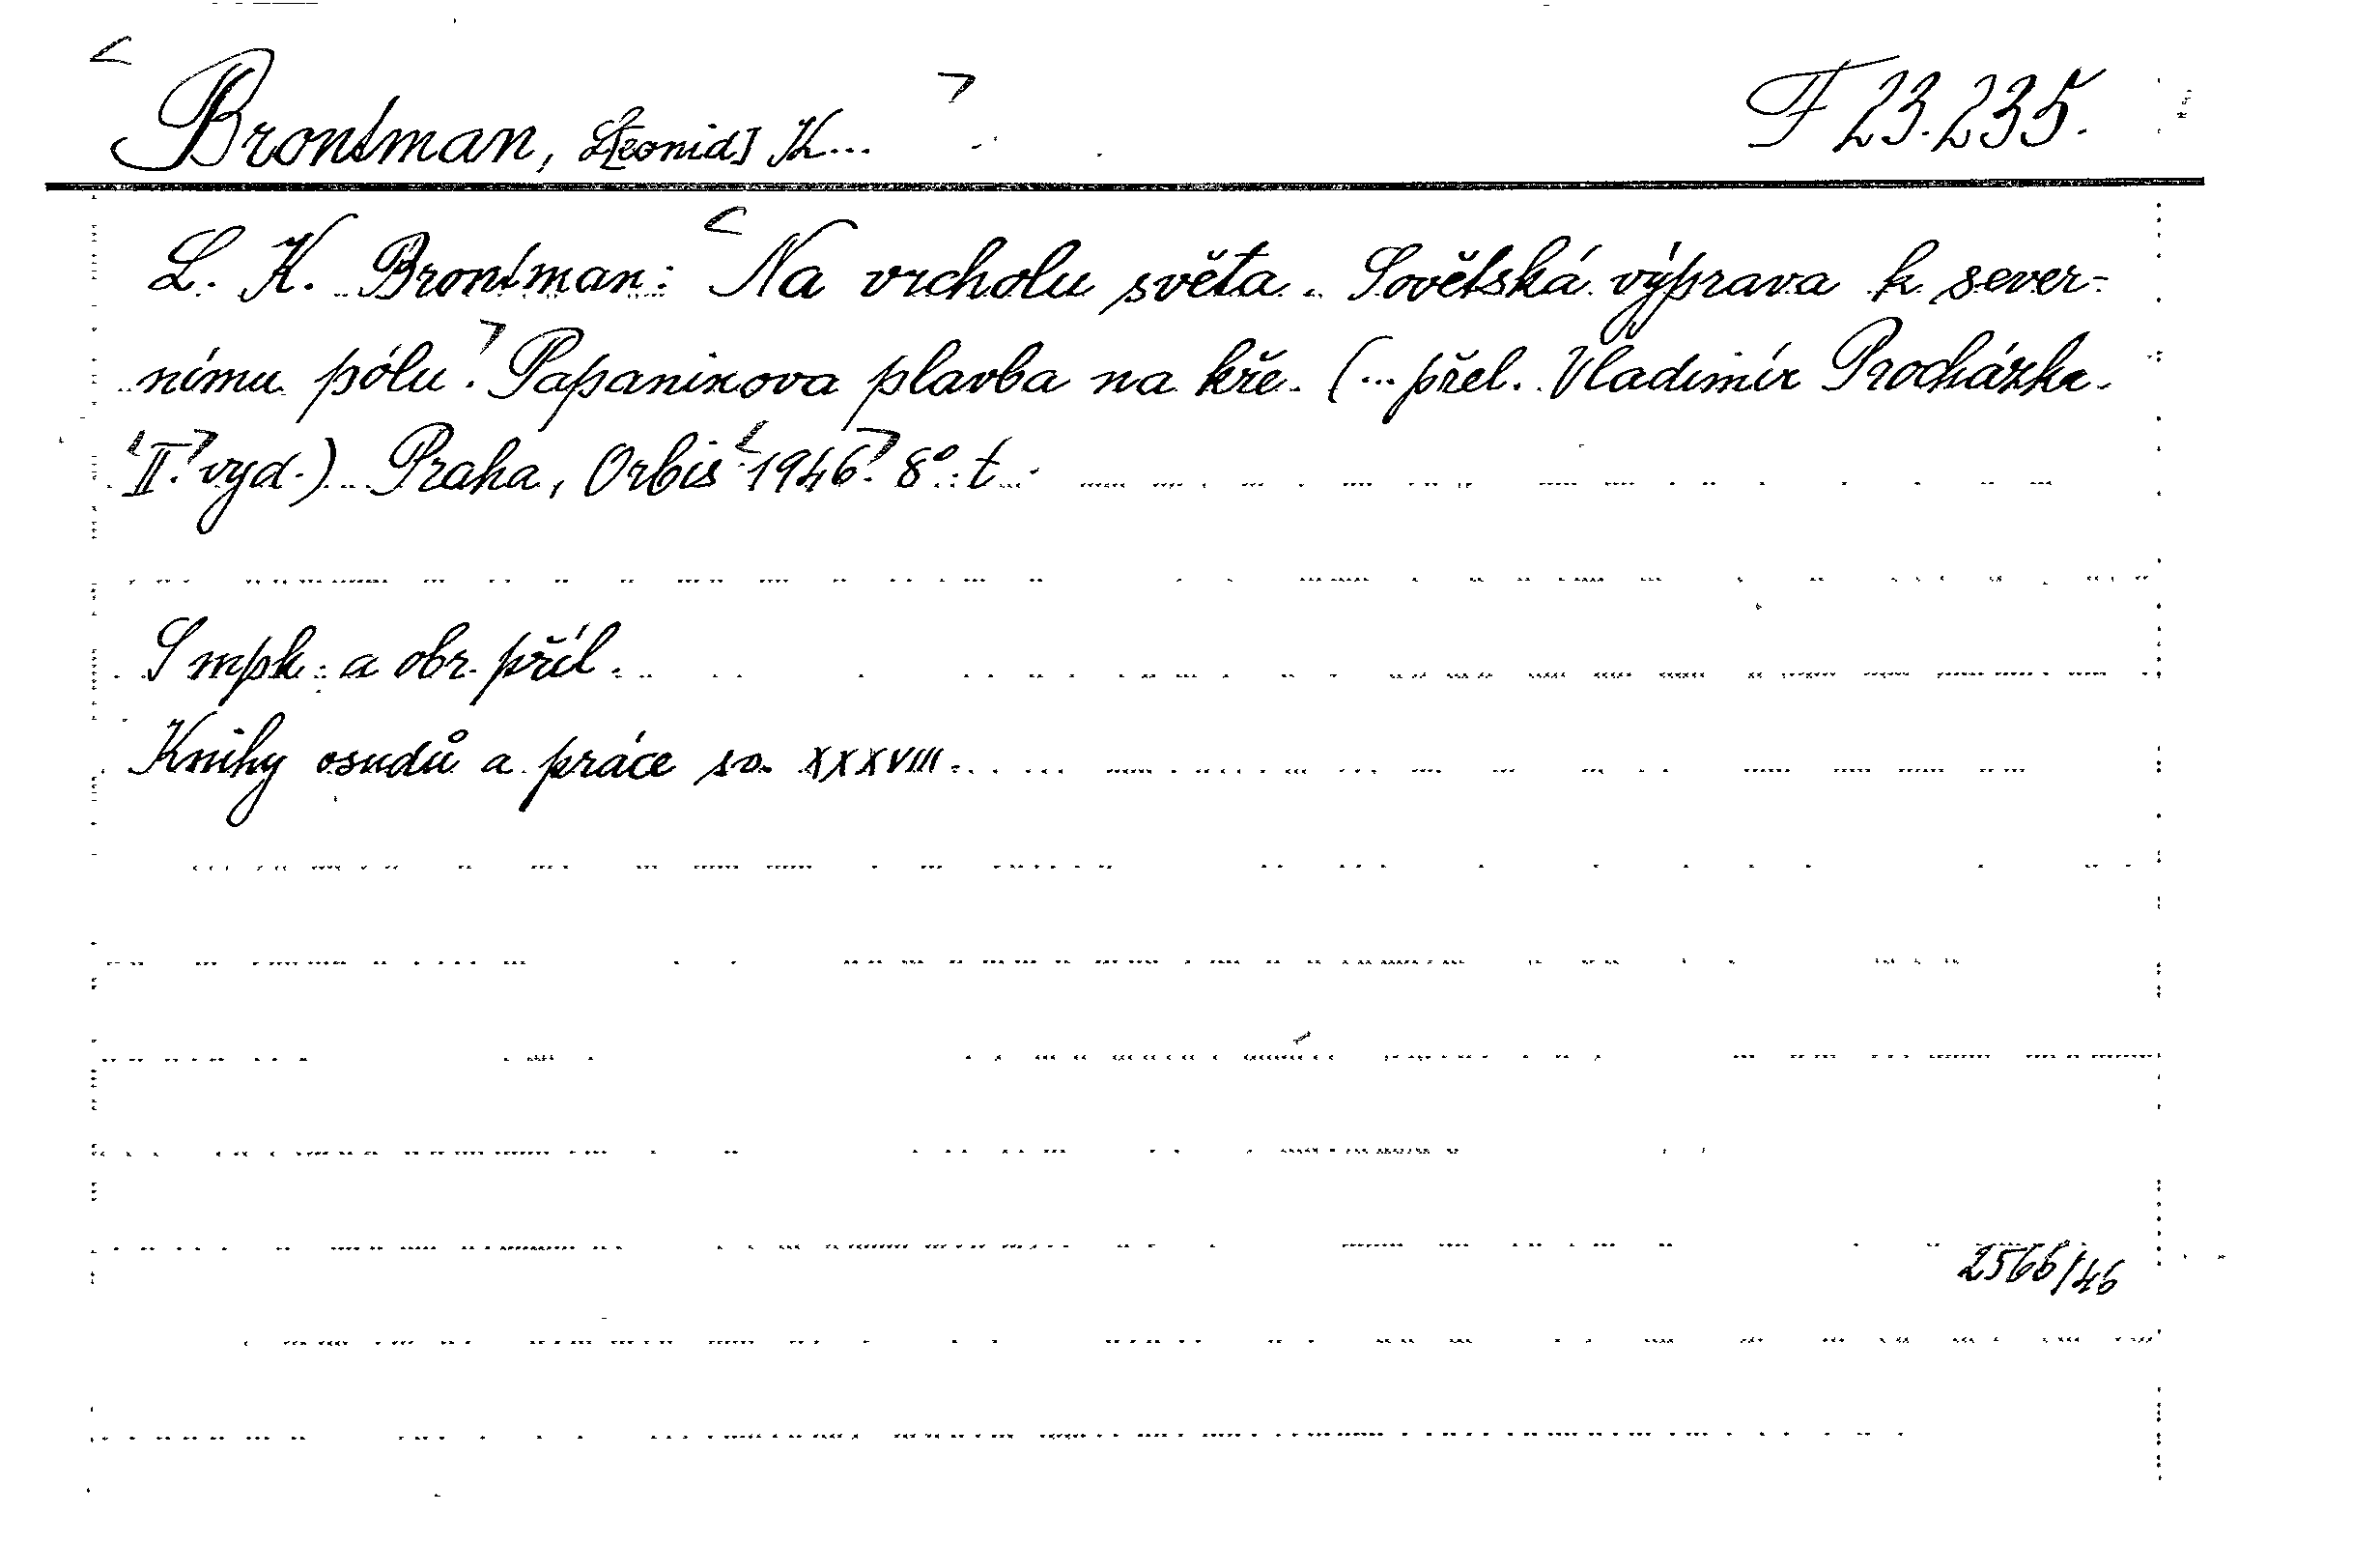 Brontman, L[eonid] K... F 23.235.
L. K. Brontman: Na vrcholu světa. Sovětská výprava k sever-
nímu pólu. Papaninova plavba na kře. (... přel. Vladimír Procházka.
II. vyd.) Praha, Orbis 1946. 8°. t.
S mpk. a obr. příl.
Knihy osudů a práce sv. XXXVIII.
2566/46